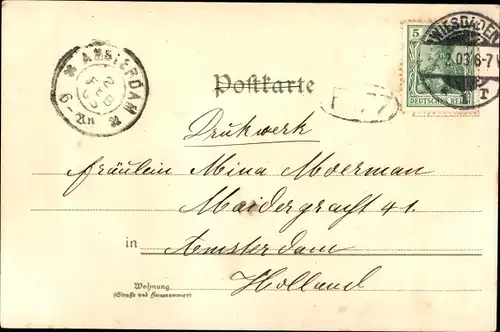 AMSTERDAM
2
FEB
03
6-7N
Postkarte
5
DEUTSCHES REICH
WIESBADEN
2.03 6-7
Drukwerk
Fräulein Mina Moerman
Maidergracht 41.
in Amsterdam
Holland
Wohnung
(Straße und Hausnummer)